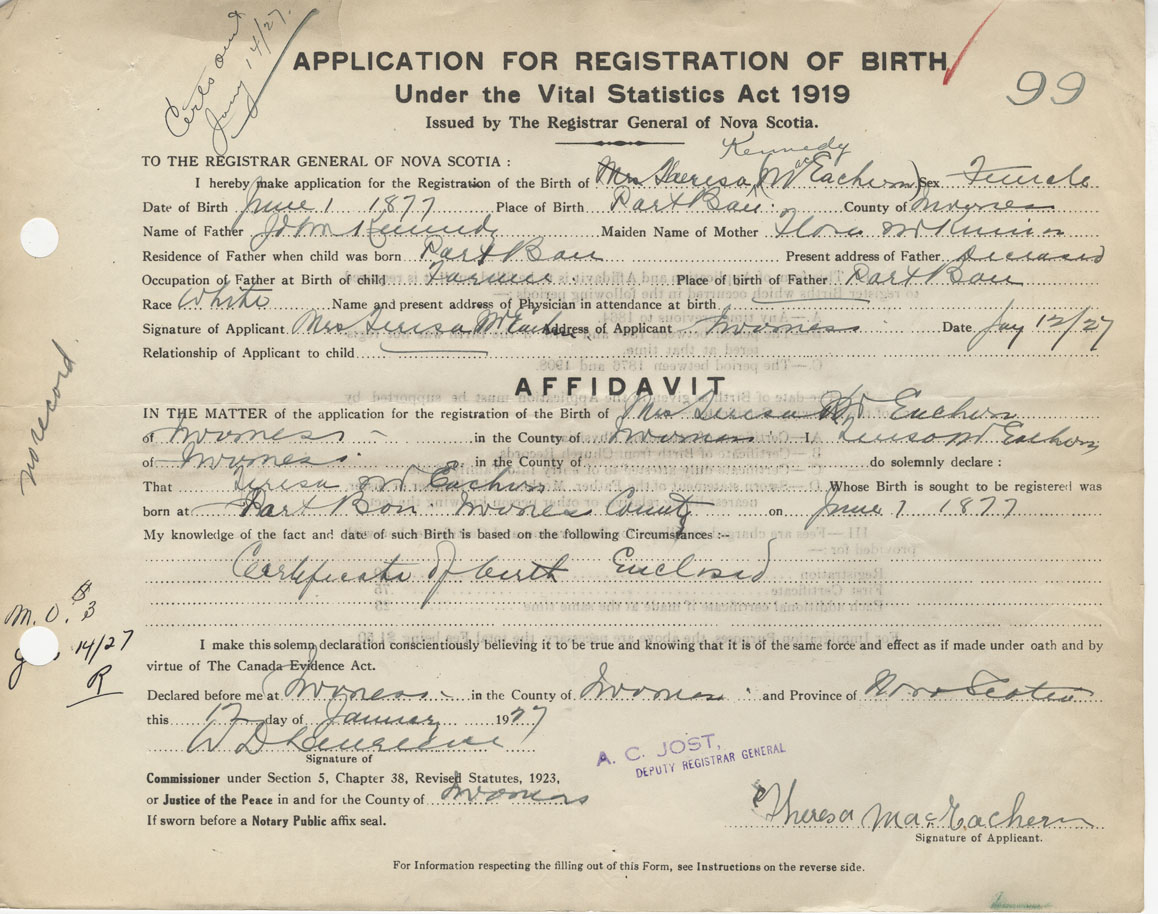 Certs out
Jany 14/27.
APPLICATION FOR REGISTRATION OF BIRTH
99
Under the Vital Statistics Act 1919
Issued by The Registrar General of Nova Scotia.
Kennedy
TO THE REGISTRAR GENERAL OF NOVA SCOTIA :
I hereby make application for the Registration of the Birth of Mrs Theresa (McEachern) Sex Female
Date of Birth June 1 1877 Place of Birth Port Ban County of Inverness
Name of Father John Kennedy Maiden Name of Mother Flora
Residence of Father when child was born Port Ban Present address of Father Deceased
Occupation of Father at Birth of child Farmer Place of birth of Father Port Ban
Race White Name and present address of Physician in attendance at birth
Signature of Applicant Mrs Teresa McEachern Address of Applicant Inverness Date Jay 12/27
Relationship of Applicant to child
no record
AFFIDAVIT
IN THE MATTER of the application for the registration of the Birth of Mrs Teresa McEachern
of Inverness in the County of Inverness I, Teresa McEachern
of Inverness in the County of do solemnly declare :
That Teresa McEachern Whose Birth is sought to be registered was
born at Port Ban Inverness County on June 1 1877
My knowledge of the fact and date of such Birth is based on the following Circumstances :--
Certificate of birth Enclosed
M.O. $3
14/27
R
I make this solemn declaration conscientiously believing it to be true and knowing that it is of the same force and effect as if made under oath and by
virtue of The Canada Evidence Act.
Declared before me at Inverness in the County of Inverness and Province of Nova Scotia
this 12 day of January 1927
Signature of
A. C. JOST,
DEPUTY REGISTRAR GENERAL
Commissioner under Section 5, Chapter 38, Revised Statutes, 1923,
or Justice of the Peace in and for the County of Inverness
If sworn before a Notary Public affix seal.
Theresa MacEachern
Signature of Applicant.
For Information respecting the filling out of this Form, see Instructions on the reverse side.